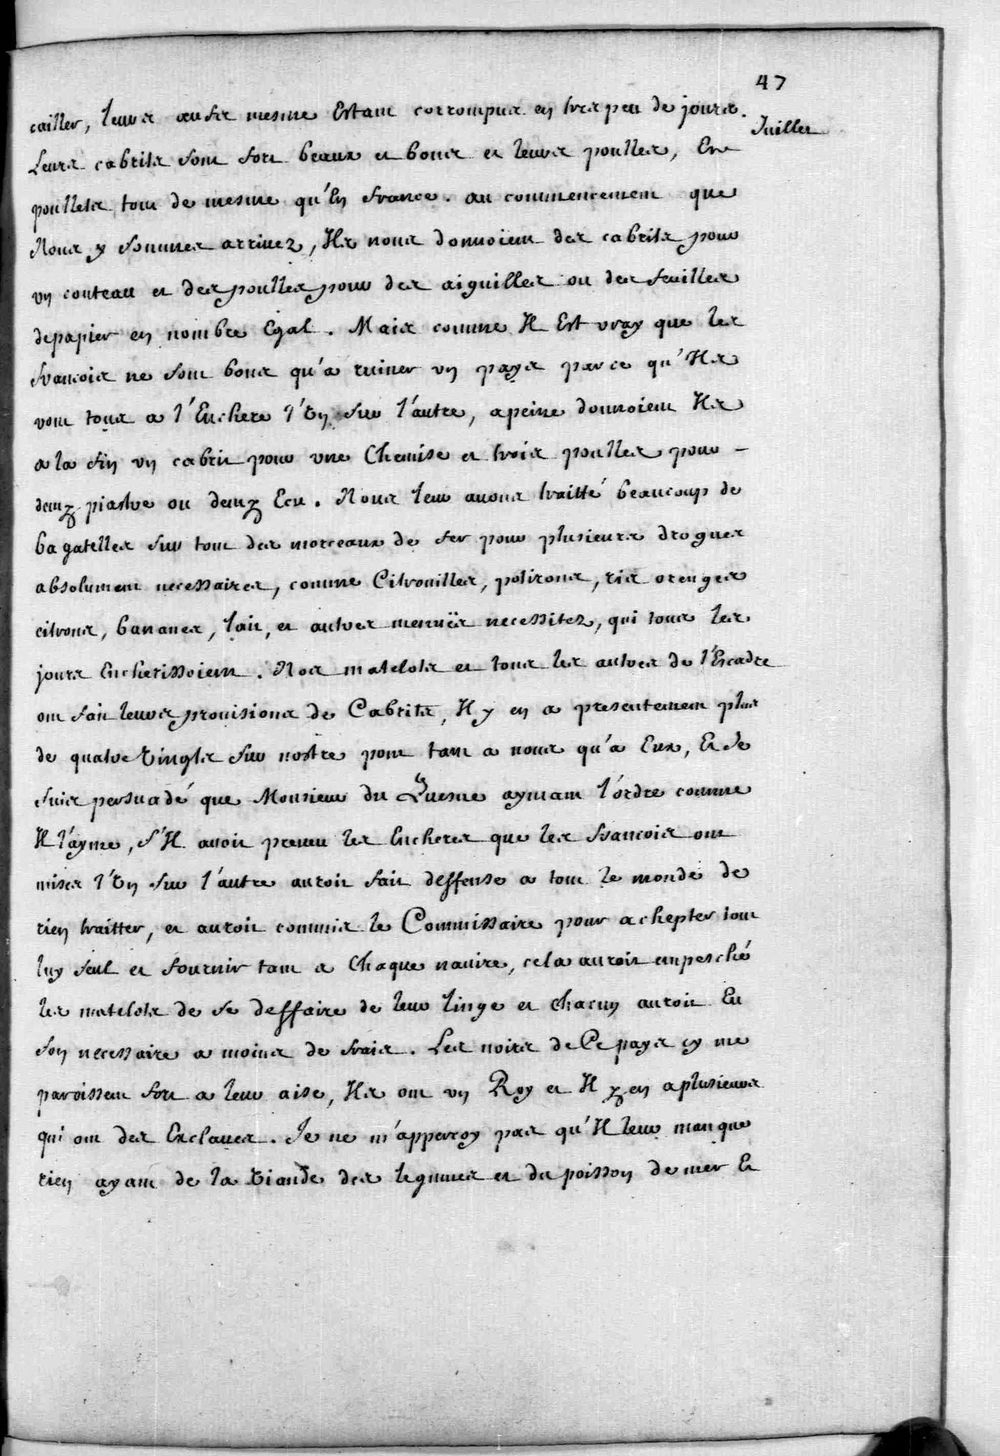 47
Juillet
cailler, leurs œufs mesme Estant corrompus en tres peu de jours.
Leurs cabrits sont fort beaux et bons et leurs poulles, Et
poullets tout de mesme qu'En france. au commencement que
Nous y sommes arrivez, Ils nous donnoient des cabrits pour
un couteau et des poulles pour des aiguilles ou des feuilles
depapier en nombre Egal. Mais comme Il Est vray que les
francois ne sont bons qu'a ruiner un pays parce qu'Ils
vont tous a l'Enchere l'Un sur l'autre, apeine donnoient Ils
a la fin un cabrit pour une Chemise et trois poulles pour –
deux piastre ou deux Ecu. Nous leur avons traitté beaucoup de
bagatelles sur tout des morceaux de fer pour plusieurs drogues
absolument necessaires, comme Citrouilles, potirons, ris orenges
citrons, bananes, lait, et autres menuës necessitez, qui tous les
jours Encherissoient. Nos matelots et tous les autres de l'Escadre
ont fait leurs provisions de Cabrits, Il y en a presentement plus
de quatre Vingts sur nostre pont tant a nous qu'a Eux, Et Je
suis persuadé que Monsieur du Quesne aymant l'ordre comme
Il l'ayme, s'Il avoit preveu les Encheres que les francois ont
mises l'Un sur l'autre auroit fait deffense a tout le monde de
rien traitter, et auroit commis le Commissaire pour achepter tout
luy seul et fournir tant a Chaque navire, cela auroit empesché
les matelots de se deffaire de leur linge et chacun auroit Eu
son necessaire a moins de frais. Les noirs de Ce pays cy me
paroissent fort a leur aise, Ils ont un Roy et Il y en a plusieurs
qui ont des Esclaves. Je ne m'appercoy pas qu'Il leur manque
rien ayant de la Viande des legumes et du poisson de mer Et